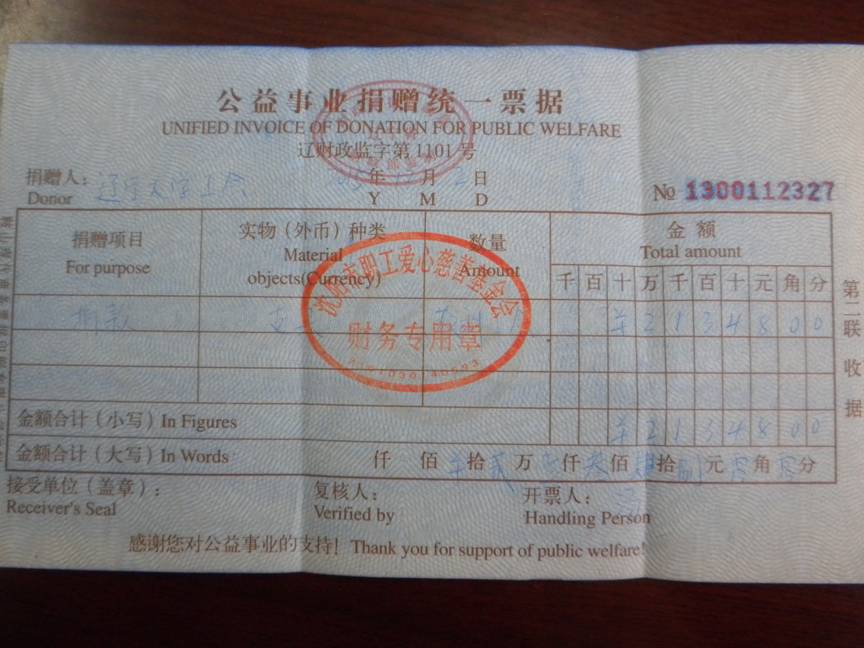 公益事业捐赠统一票据
UNIFIED INVOICE OF DONATION FOR PUBLIC WELFARE
辽财政监字第1101号
捐赠人: 辽宁大学工会 年 月 日
Donor Y M D
№ 1300112327
捐赠项目 实物（外币）种类 数量 金额
For purpose Material objects(Currency) Amount Total amount
千 百 十 万 千 百 十 元 角 分
捐款 2 1 3 4 8 0 0
沈阳市职工爱心慈善基金会
财务专用章
金额合计（小写）In Figures 2 1 3 4 8 0 0
金额合计（大写）In Words 仟 佰 拾 贰 万 仟 佰 拾 元 角 分
接受单位（盖章）: 复核人: 开票人:
Receiver's Seal Verified by Handling Person
感谢您对公益事业的支持! Thank you for support of public welfare!
第二联 收据